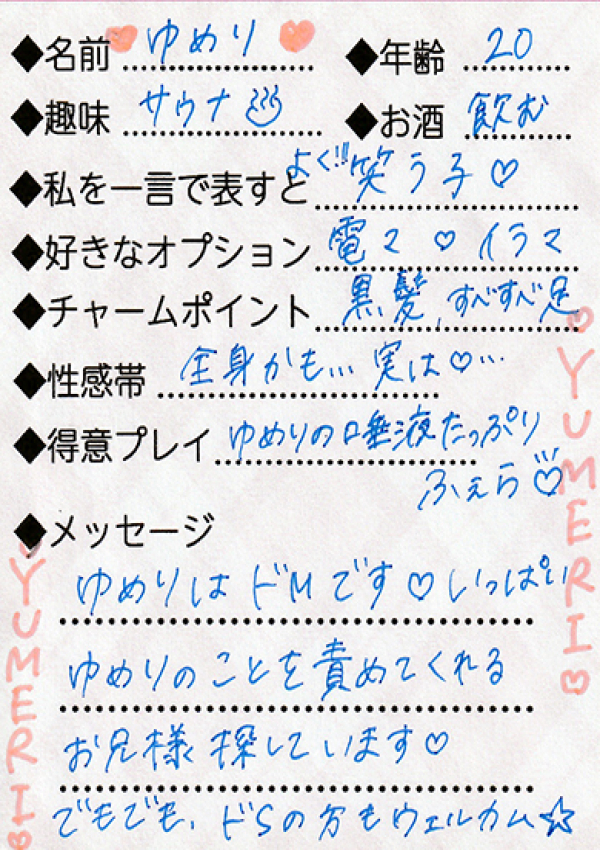 ◆名前 ゆめり ◆年齢 20
◆趣味 サウナ ◆お酒 飲む
◆私を一言で表すと よく!!笑う子♡
◆好きなオプション 電マ♡イラマ
◆チャームポイント 黒髪、すべすべ足
◆性感帯 全身かも... 実は♡...
◆得意プレイ ゆめりの唾液たっぷり
ふぇら♡
◆メッセージ
ゆめりはドMです♡いっぱい
ゆめりのことを責めてくれる
お兄様探しています♡
でもでも、ドSの方もウェルカム☆
YUMERI
YUMERI